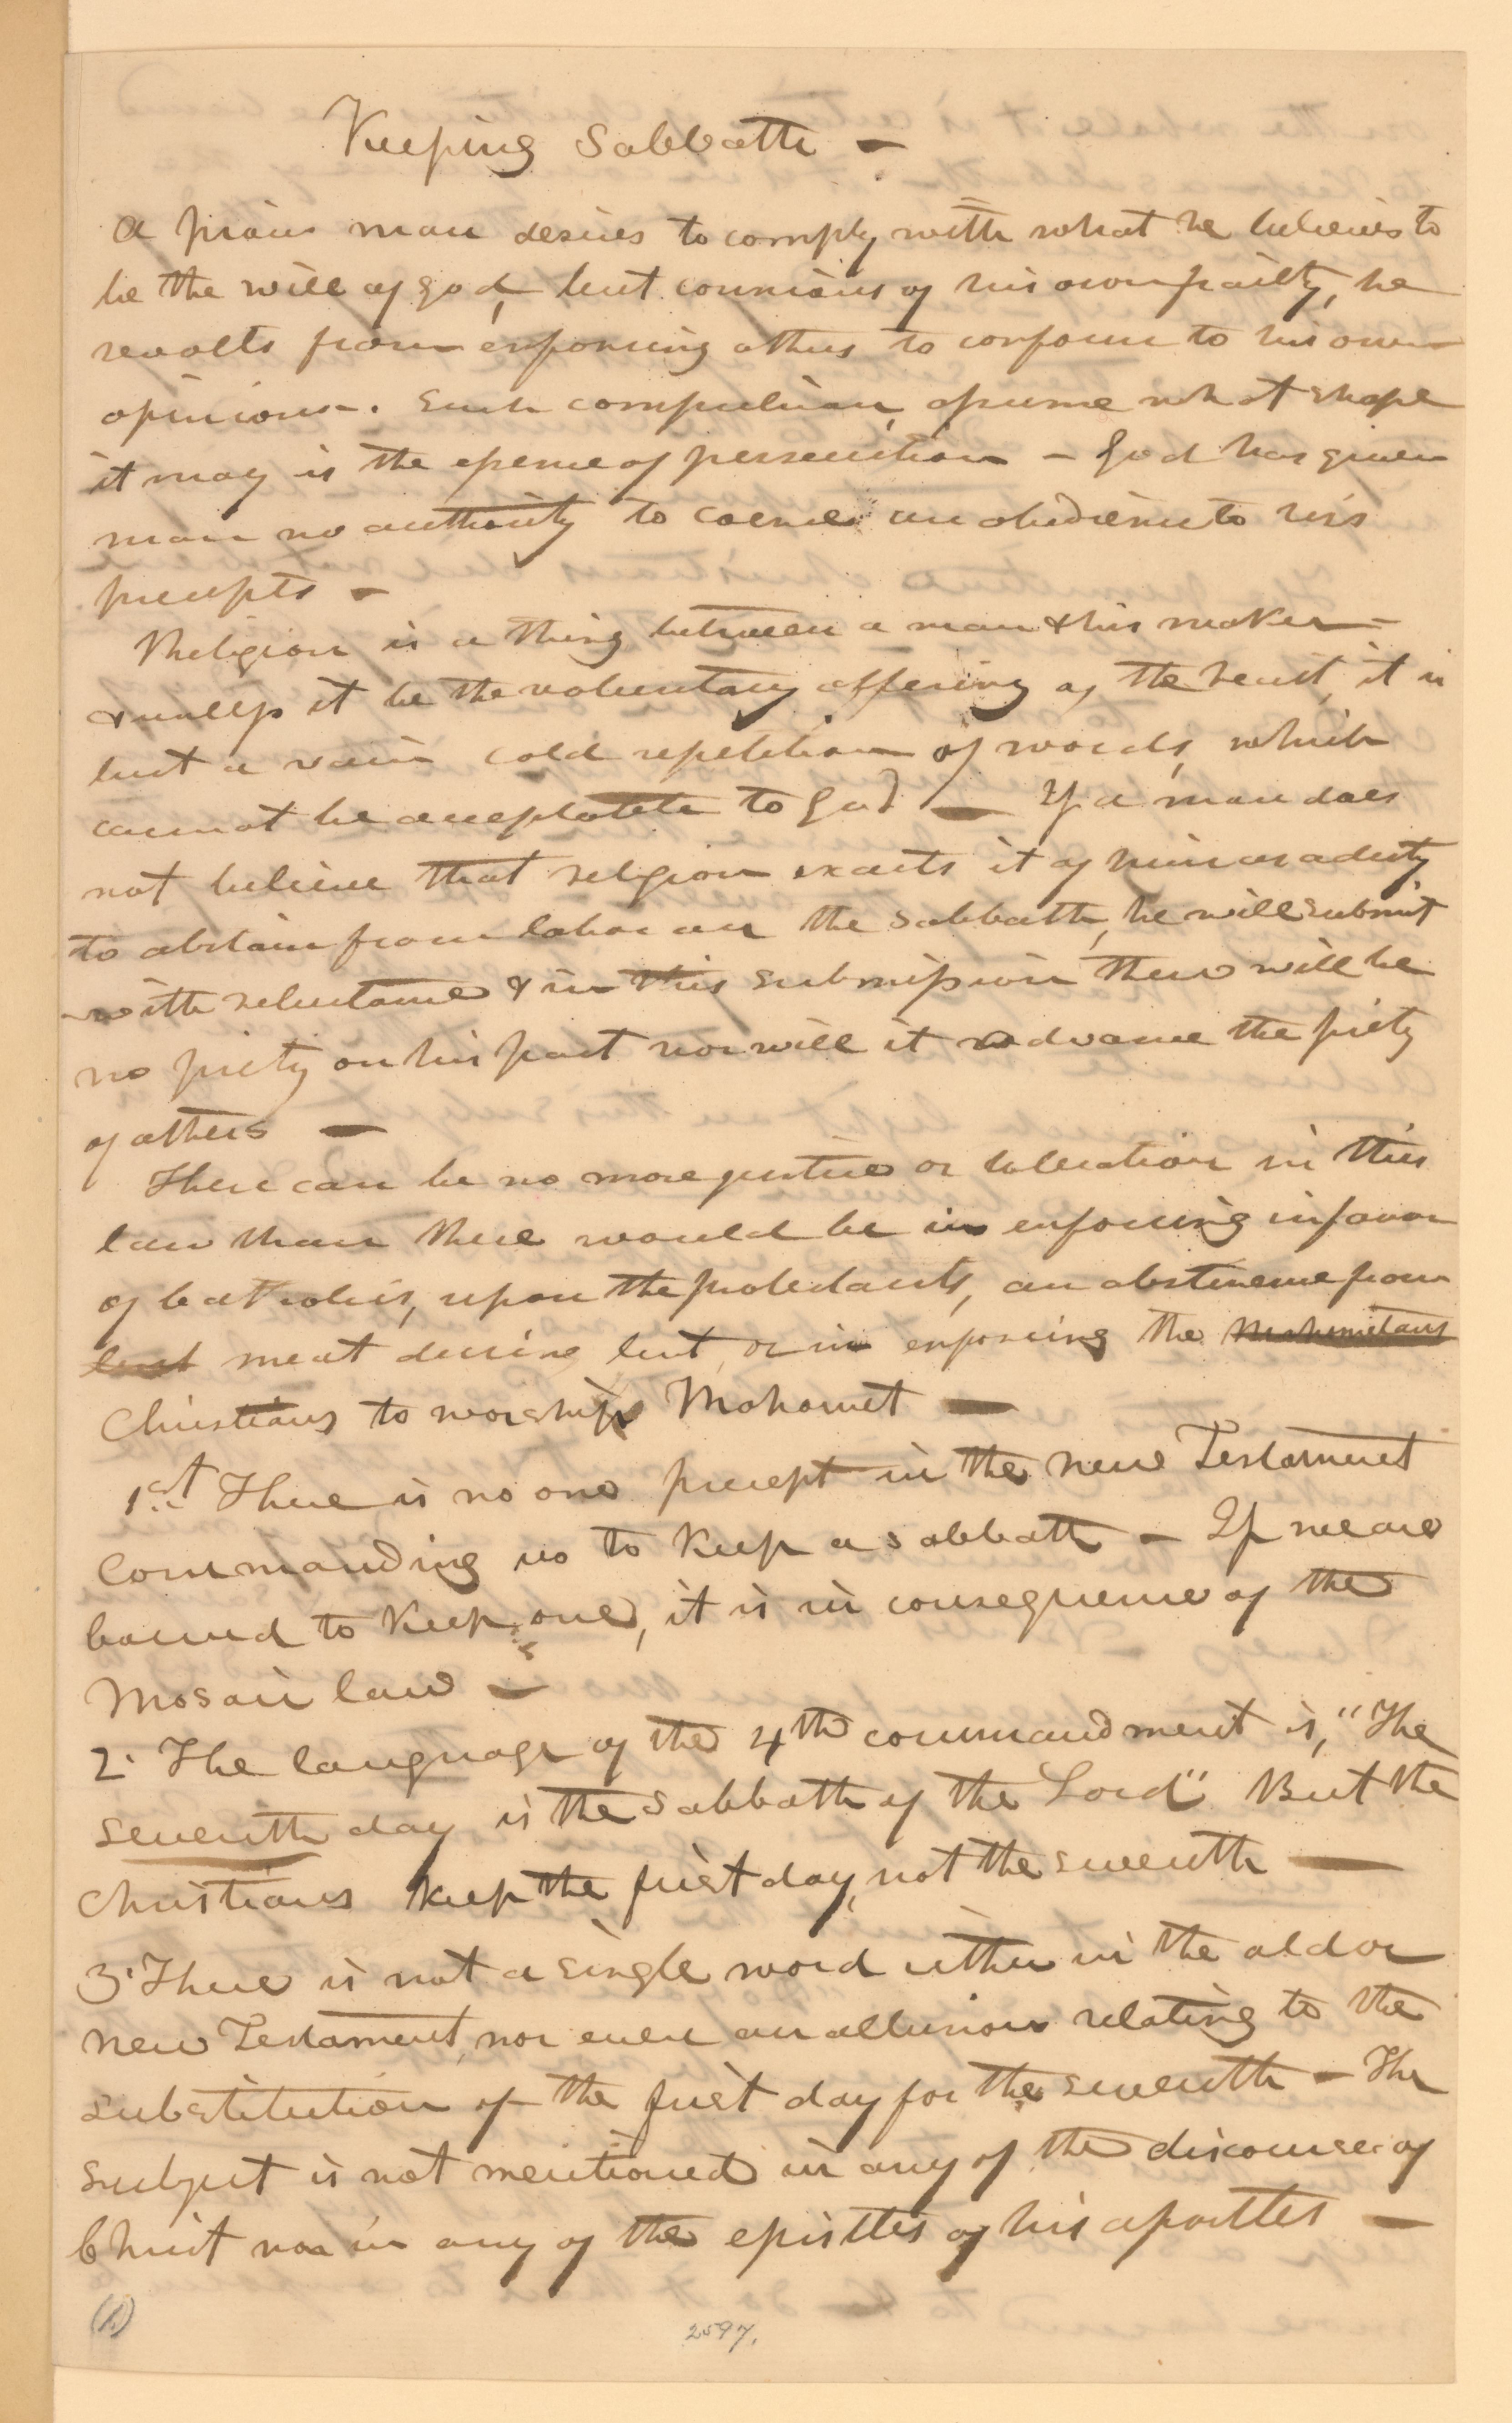 Keeping Sabbath —
A pious man desires to comply with what he believes to
be the will of god, butconscious of his own frailty, he
revolts from enforcing others to conform to his own
opinions. Such compulsion, assume what shape
it may is the essence of persecution — God has given
man no authority to coerce an obedience to his
precepts —
Religion is a thing between a man & his maker —
& unless it be the voluntary offering of the heart, it is
but a vain cold repetition of words, which
cannot be acceptable to God — If a man does
not believe that religion exacts it of him as a duty
to abstain from labor on the sabbath, he will submit
with reluctance & in this submission there will be
no piety on his part nor will it advance the piety
of others —
There can be no more justice or toleration in this
law than there would be in enforcing in favor
of Catholics, upon the protestants, an abstinence from
lent meat during lent, or in enforcing the Mahometans
Christians to worship Mahomet —
1st There is no one precept in the new Testament
Commanding us to Keep a sabbath — If we are
bound to Keep one, it is in consequence of the
Mosaic law —
2. The language of the 4th commandment is, "The
seventh day is the Sabbath of the Lord" But the
Christians Keep the first day, not the seventh —
3. There is not a single word either in the old or
new Testament, nor even an allusion relating to the
substitution of the first day for the seventh — The
subject is not mentioned in any of the discourses of
Christ nor in any of the epistles of his apostles —
(1.)
2597.